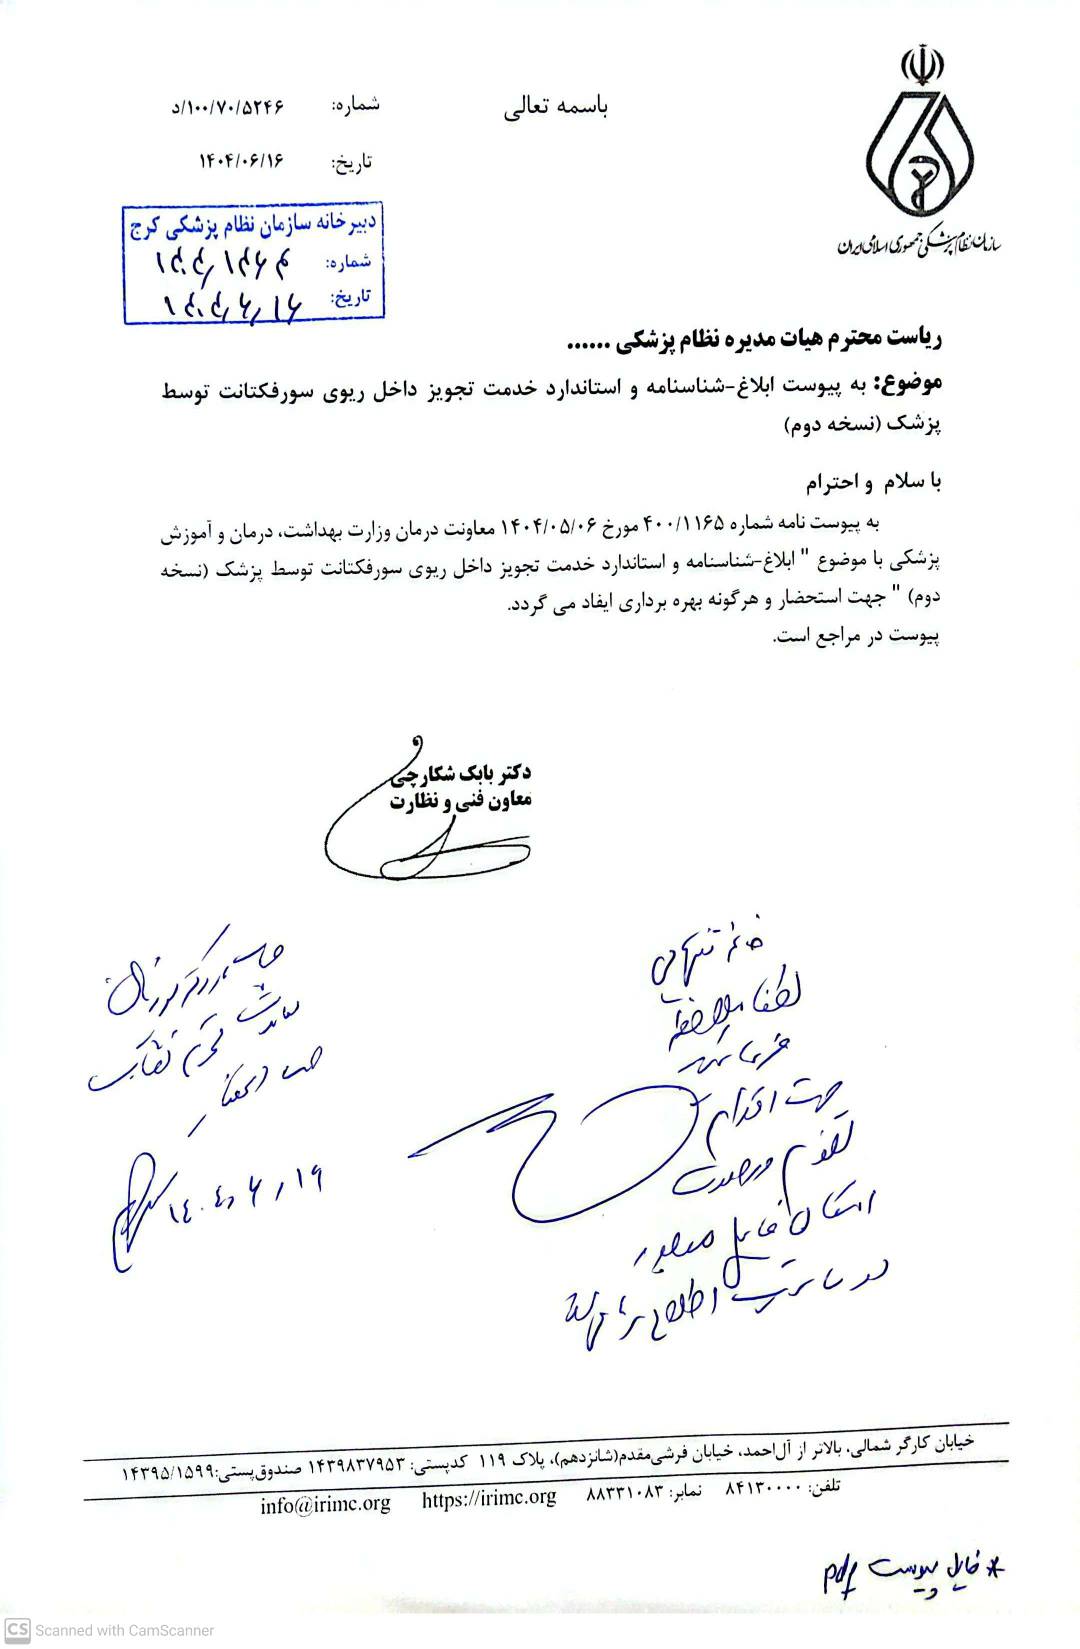 باسمه تعالی
شماره: ۵۲۴۶/۱۰۰/۷۰/د
تاریخ: ۱۴۰۴/۰۶/۱۶
سازمان نظام پزشکی جمهوری اسلامی ایران
دبیرخانه سازمان نظام پزشکی کرج
شماره:
تاریخ:
ریاست محترم هیات مدیره نظام پزشکی ......
موضوع: به پیوست ابلاغ-شناسنامه و استاندارد خدمت تجویز داخل ریوی سورفکتانت توسط
پزشک (نسخه دوم)
با سلام و احترام
به پیوست نامه شماره ۴۰۰/۱۱۶۵ مورخ ۱۴۰۴/۰۵/۰۶ معاونت درمان وزارت بهداشت، درمان و آموزش
پزشکی با موضوع " ابلاغ-شناسنامه و استاندارد خدمت تجویز داخل ریوی سورفکتانت توسط پزشک (نسخه
دوم) " جهت استحضار و هرگونه بهره برداری ایفاد می گردد.
پیوست در مراجع است.
دکتر بابک شکارچی
معاون فنی و نظارت
لطفا ملاحظه
فرمایید
جهت اقدام
در سایت اطلاع
۱۴۰۴/۶/۱۹
خیابان کارگر شمالی، بالاتر از آل‌احمد، خیابان فرشی‌مقدم(شانزدهم)، پلاک ۱۱۹ کدپستی: ۱۴۳۹۸۳۷۹۵۳ صندوق‌پستی:۱۴۳۹۵/۱۵۹۹
تلفن: ۸۴۱۳۰۰۰۰ نمابر: ۸۸۳۳۱۰۸۳ https://irimc.org info@irimc.org
* فایل پیوست pdf
CS Scanned with CamScanner